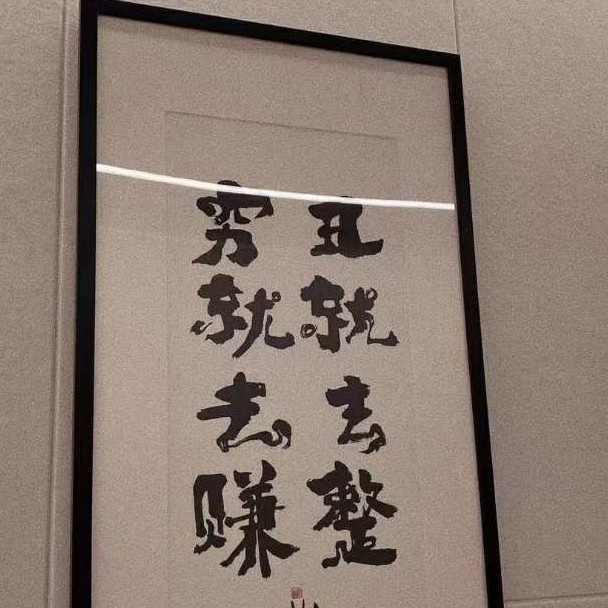 丑就去整
穷就去赚